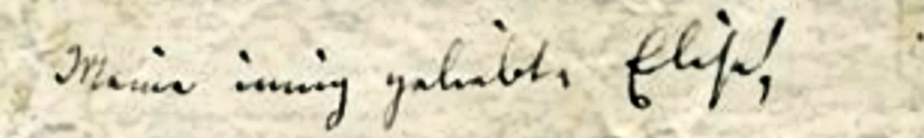 Meine innig geliebte Elise!